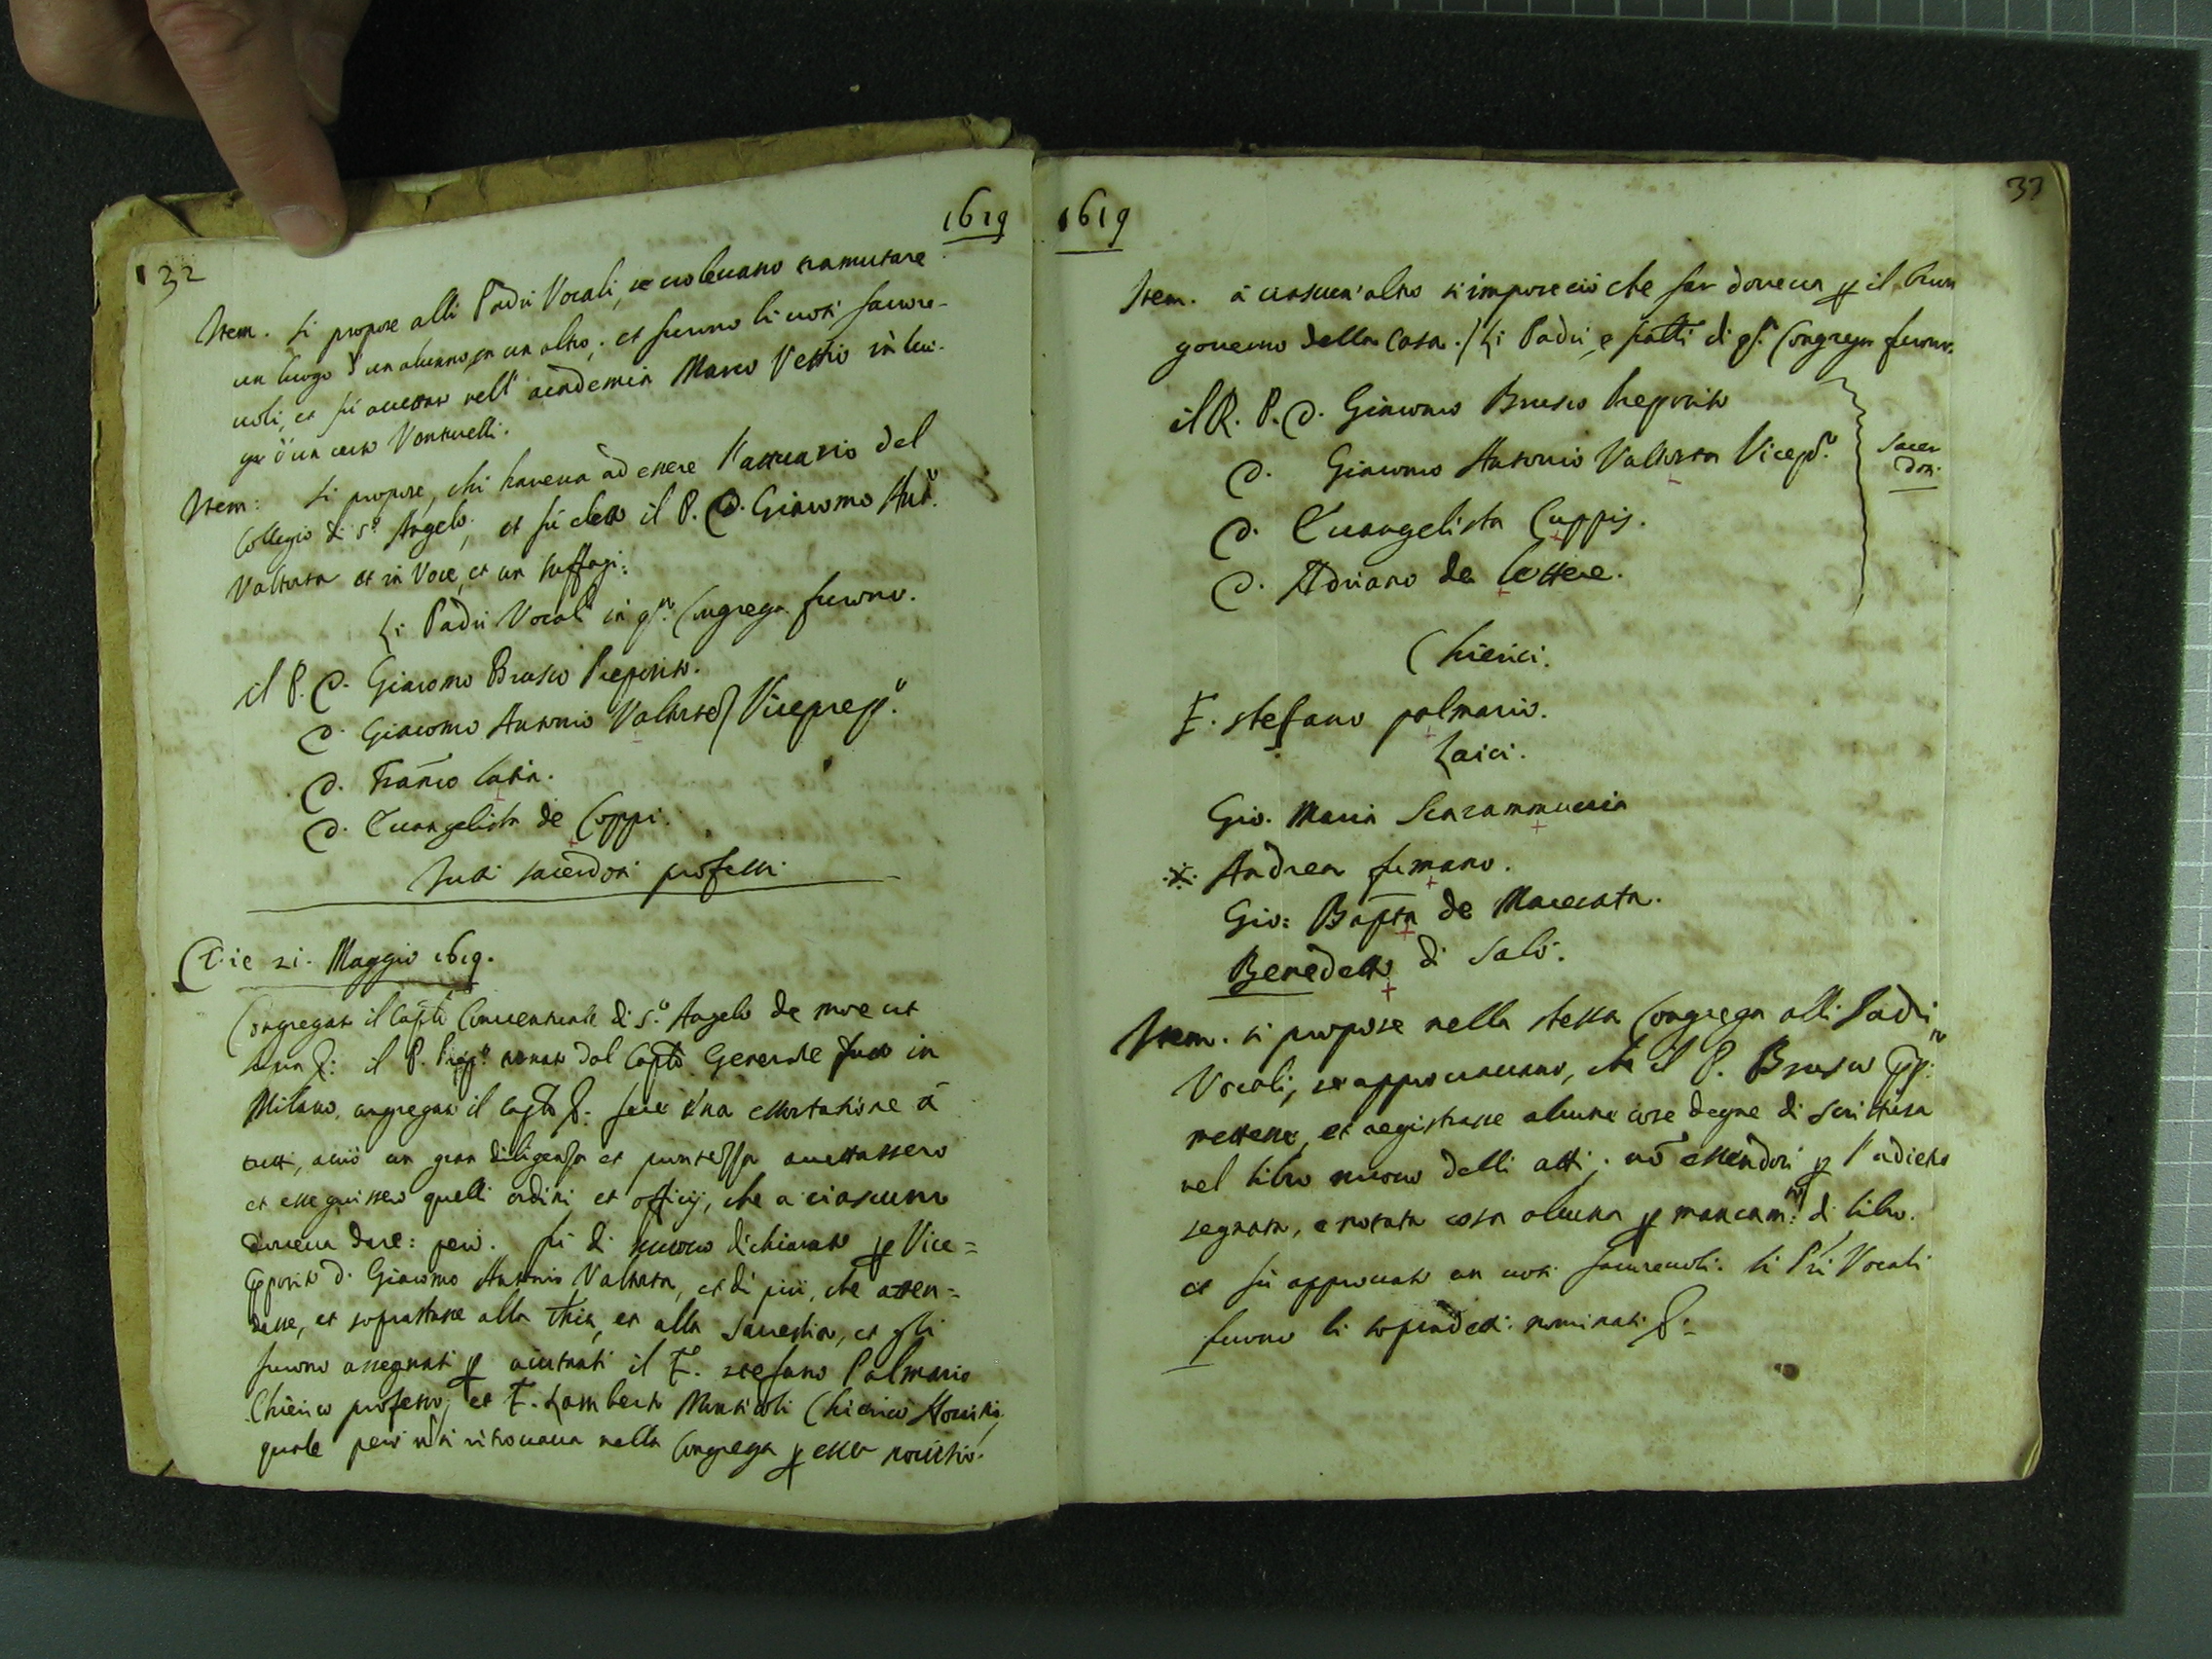 32
1619
Item. si propose alli Padri Vocali, se voleuano tramutare
un luogo d'un alunno, in un altro; et furono li uoti fauore-
uoli, et fù accettato nell'academia Marco Vettio in luo-
go d'un certo Venturelli.
Item: si propose, chi haueua ad essere l'attuario del
Collegio di S.º Angelo, et fù eletto il P. D. Giacomo Ant.º
Valtorta et in Voce, et con suffragi:
Li Padri Vocali in q.sta Congrega furono.
il P. D. Giacomo Brusco Preposito.
D. Giacomo Antonio Valtorta Viceprep.º
D. Fran.co
D. Euangelista de Coppi.
Tutti sacerdoti professi
Die 21. Maggio 1619.
Congregato il Capto Conuentuale di S.º Angelo de more ut
supra &: il P. Prep.º tornato dal Capto Generale fatto in
Milano, congregato il Capto &. fece una essortatione à
tutti, acciò con gran diligenza et puntezza accettassero
et esseguissero quelli ordini et officij, che a ciascuno
doueua dare: però. fù di nuouo dichiarato ꝑ Vice=
pposito D. Giacomo Antonio Valtorta, et di più, che atten=
desse, et soprastasse alla chia, et alla Sacrestia, et gli
furono assegnati ꝑ aiutanti il F. Stefano Palmario
Chierico professo; et F. Lamberto Chierico Nouitio,
quale però nō si ritrouaua nella Congrega ꝑ esser nouitio.
1619
33
Item. à ciascun'altro s'impose ciò che far doueua ꝑ il buon
gouerno della Casa. / Li Padri, e fratti di q.sta Congrega furono.
il R. P. D. Giacomo Brusco Preposito
D. Giacomo Antonio Valtorta Vicep.º
D. Euangelista Coppis.
D. Adriano de
Sacer
doti.
Chierici.
F. Stefano palmario.
Laici.
Gio. Maria Scarammuccia
Andrea fumano.
Gio: Bapta de Macerata.
Benedetto di Salò.
Item. si propose nella stessa Congrega alli Padri
Vocali, se approuauano, che il P. Brusco pp.to
mettesse, et registrasse alcune cose degne di scrittura
nel libro nuouo delli atti; nō essendosi ꝑ l'adietro
segnata, e notata cosa alcuna ꝑ mancam.to di libro.
et fù approuato con uoti fauoreuoli. li Pri Vocali
furono li sopradetti nominati &.